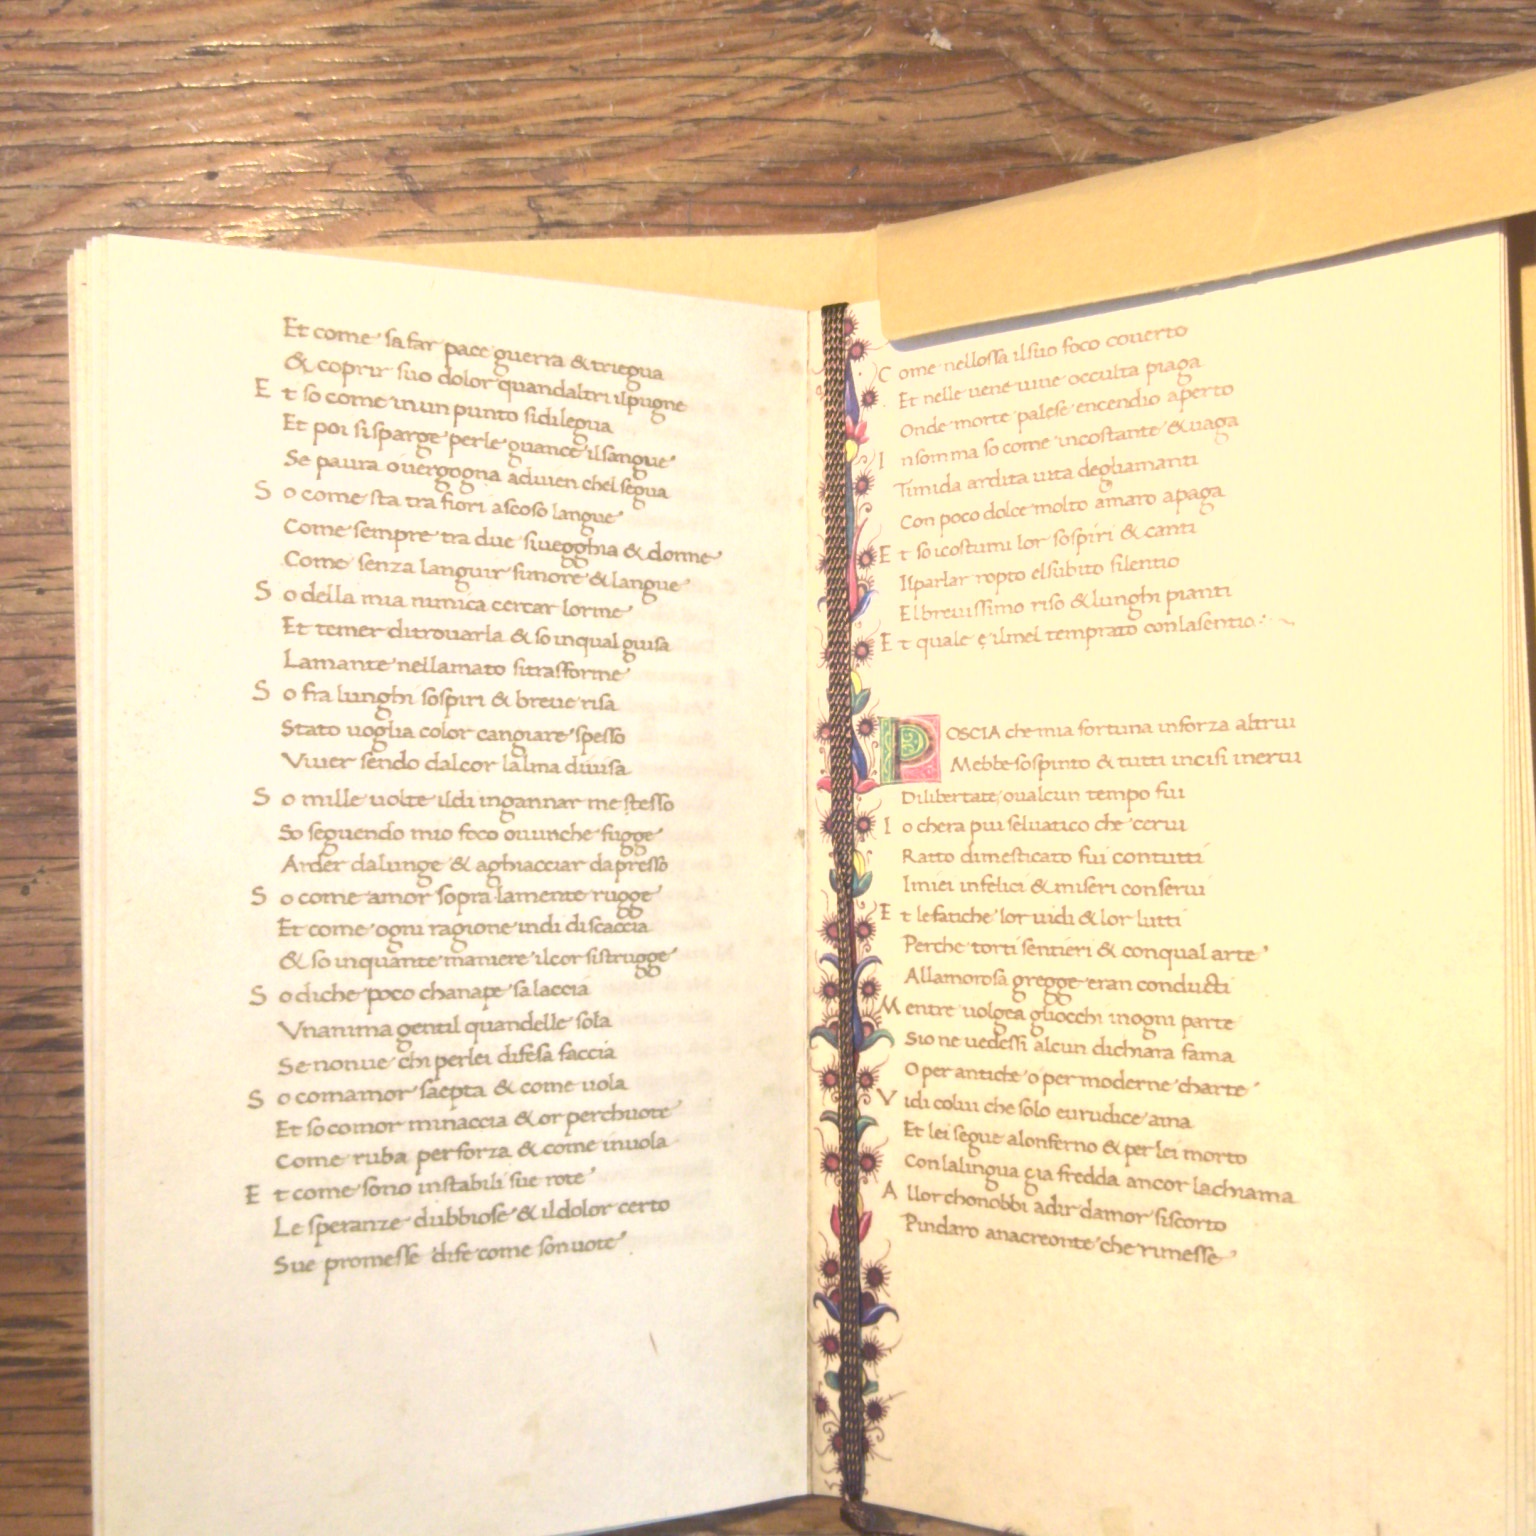 Et come sa far pace guerra & triegua
& coprir suo dolor quandaltri ilpugne
E t so come inun punto sidilegua
Et poi sisparge perle guance ilsangue
Se paura overgogna advien chelsegua
S o come sta tra fiori ascoso langue
Come sempre tra due sivegghia & dorme
Come senza languir simore & langue
S o della mia nimica cercar lorme
Et temer ditrovarla & so inqual guisa
Lamante nellamato sitrasforme
S o fra lunghi sospiri & breve risa
Stato voglia color cangiare spesso
Viver sendo dalcor lalma divisa
S o mille volte ildi ingannar me stesso
So seguendo mio foco ovunche fugge
Arder dalunge & aghiacciar dapresso
S o come amor sopra lamente rugge
Et come ogni ragione indi discaccia
& so inquante maniere ilcor sistrugge
S o diche poco chanape salaccia
Vnanima gentil quandelle sola
Se nonve chi perlei difesa faccia
S o comamor saepta & come vola
Et so comor minaccia & or perchuote
Come ruba perforza & come invola
E t come sono instabili sue rote
Le speranze dubbiose & ildolor certo
Sue promesse dife come sonvote
C ome nellossa ilsuo foco coverto
Et nelle vene vive occulta piaga
Onde morte palese encendio aperto
I nsomma so come incostante & vaga
Timida ardita vita degliamanti
Con poco dolce molto amaro apaga
E t so icostumi lor sospiri & canti
Ilparlar ropto elsubito silentio
Elbrevissimo riso & lunghi pianti
E t quale ę ilmel temprato conlasentio
POSCIA che mia fortuna inforza altrui
Mebbe sospinto & tutti incisi inervi
Dilibertate ovalcun tempo fui
I o chera piu selvatico che cervi
Ratto dimesticato fui contutti
Imiei infelici & miseri conservi
E t lefatiche lor vidi & lor lutti
Perche torti sentieri & conqual arte
Allamorosa gregge eran conducti
M entre volgea gliocchi inogni parte
Sio ne vedessi alcun dichiara fama
O per antiche o per moderne charte
V idi colui che solo eurudice ama
Et lei segue alonferno & per lei morto
Conlalingua gia fredda ancor lachiama
A llor chonobbi adir damor siscorto
Pindaro anacreonte che rimesse